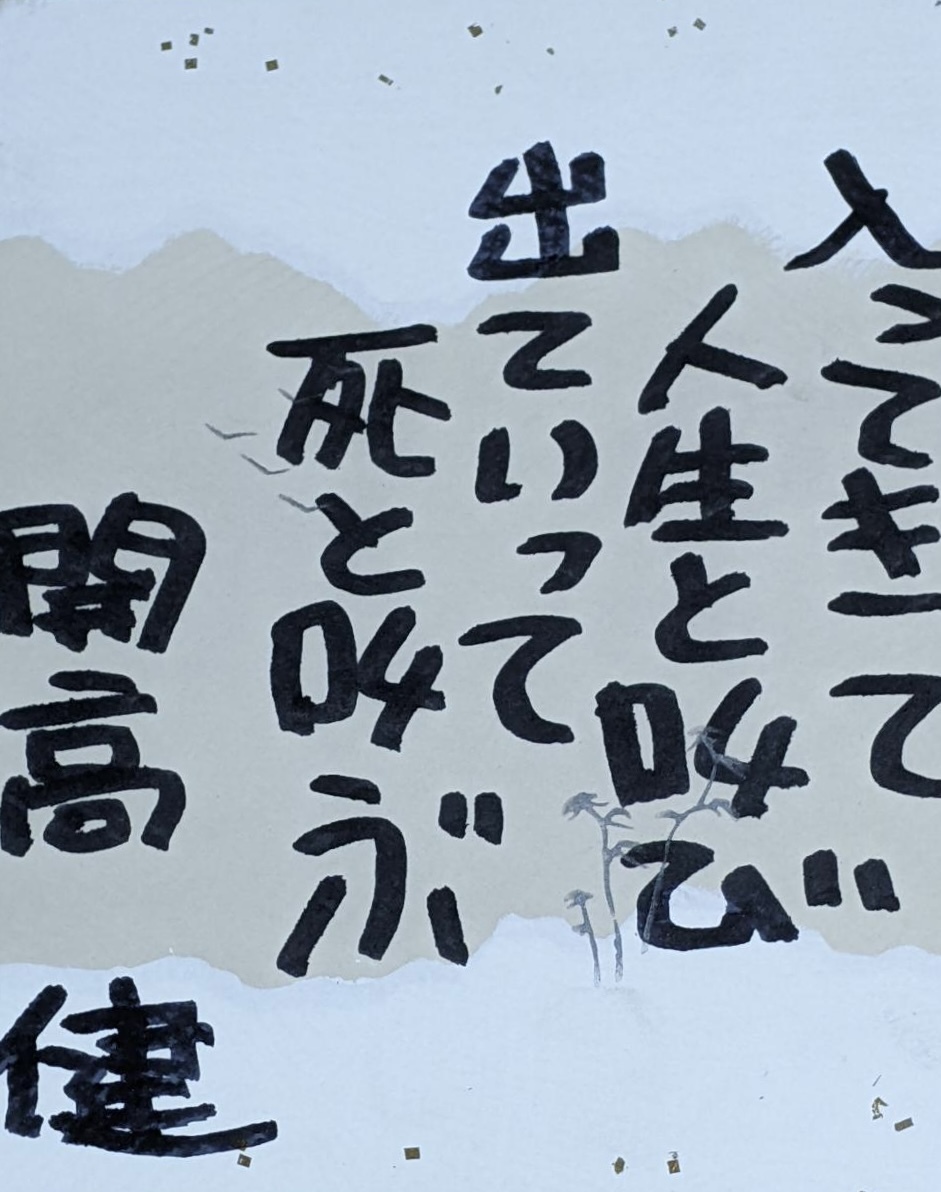 入ってきて
人生と叫び
出ていって
死と叫ぶ
開高
健